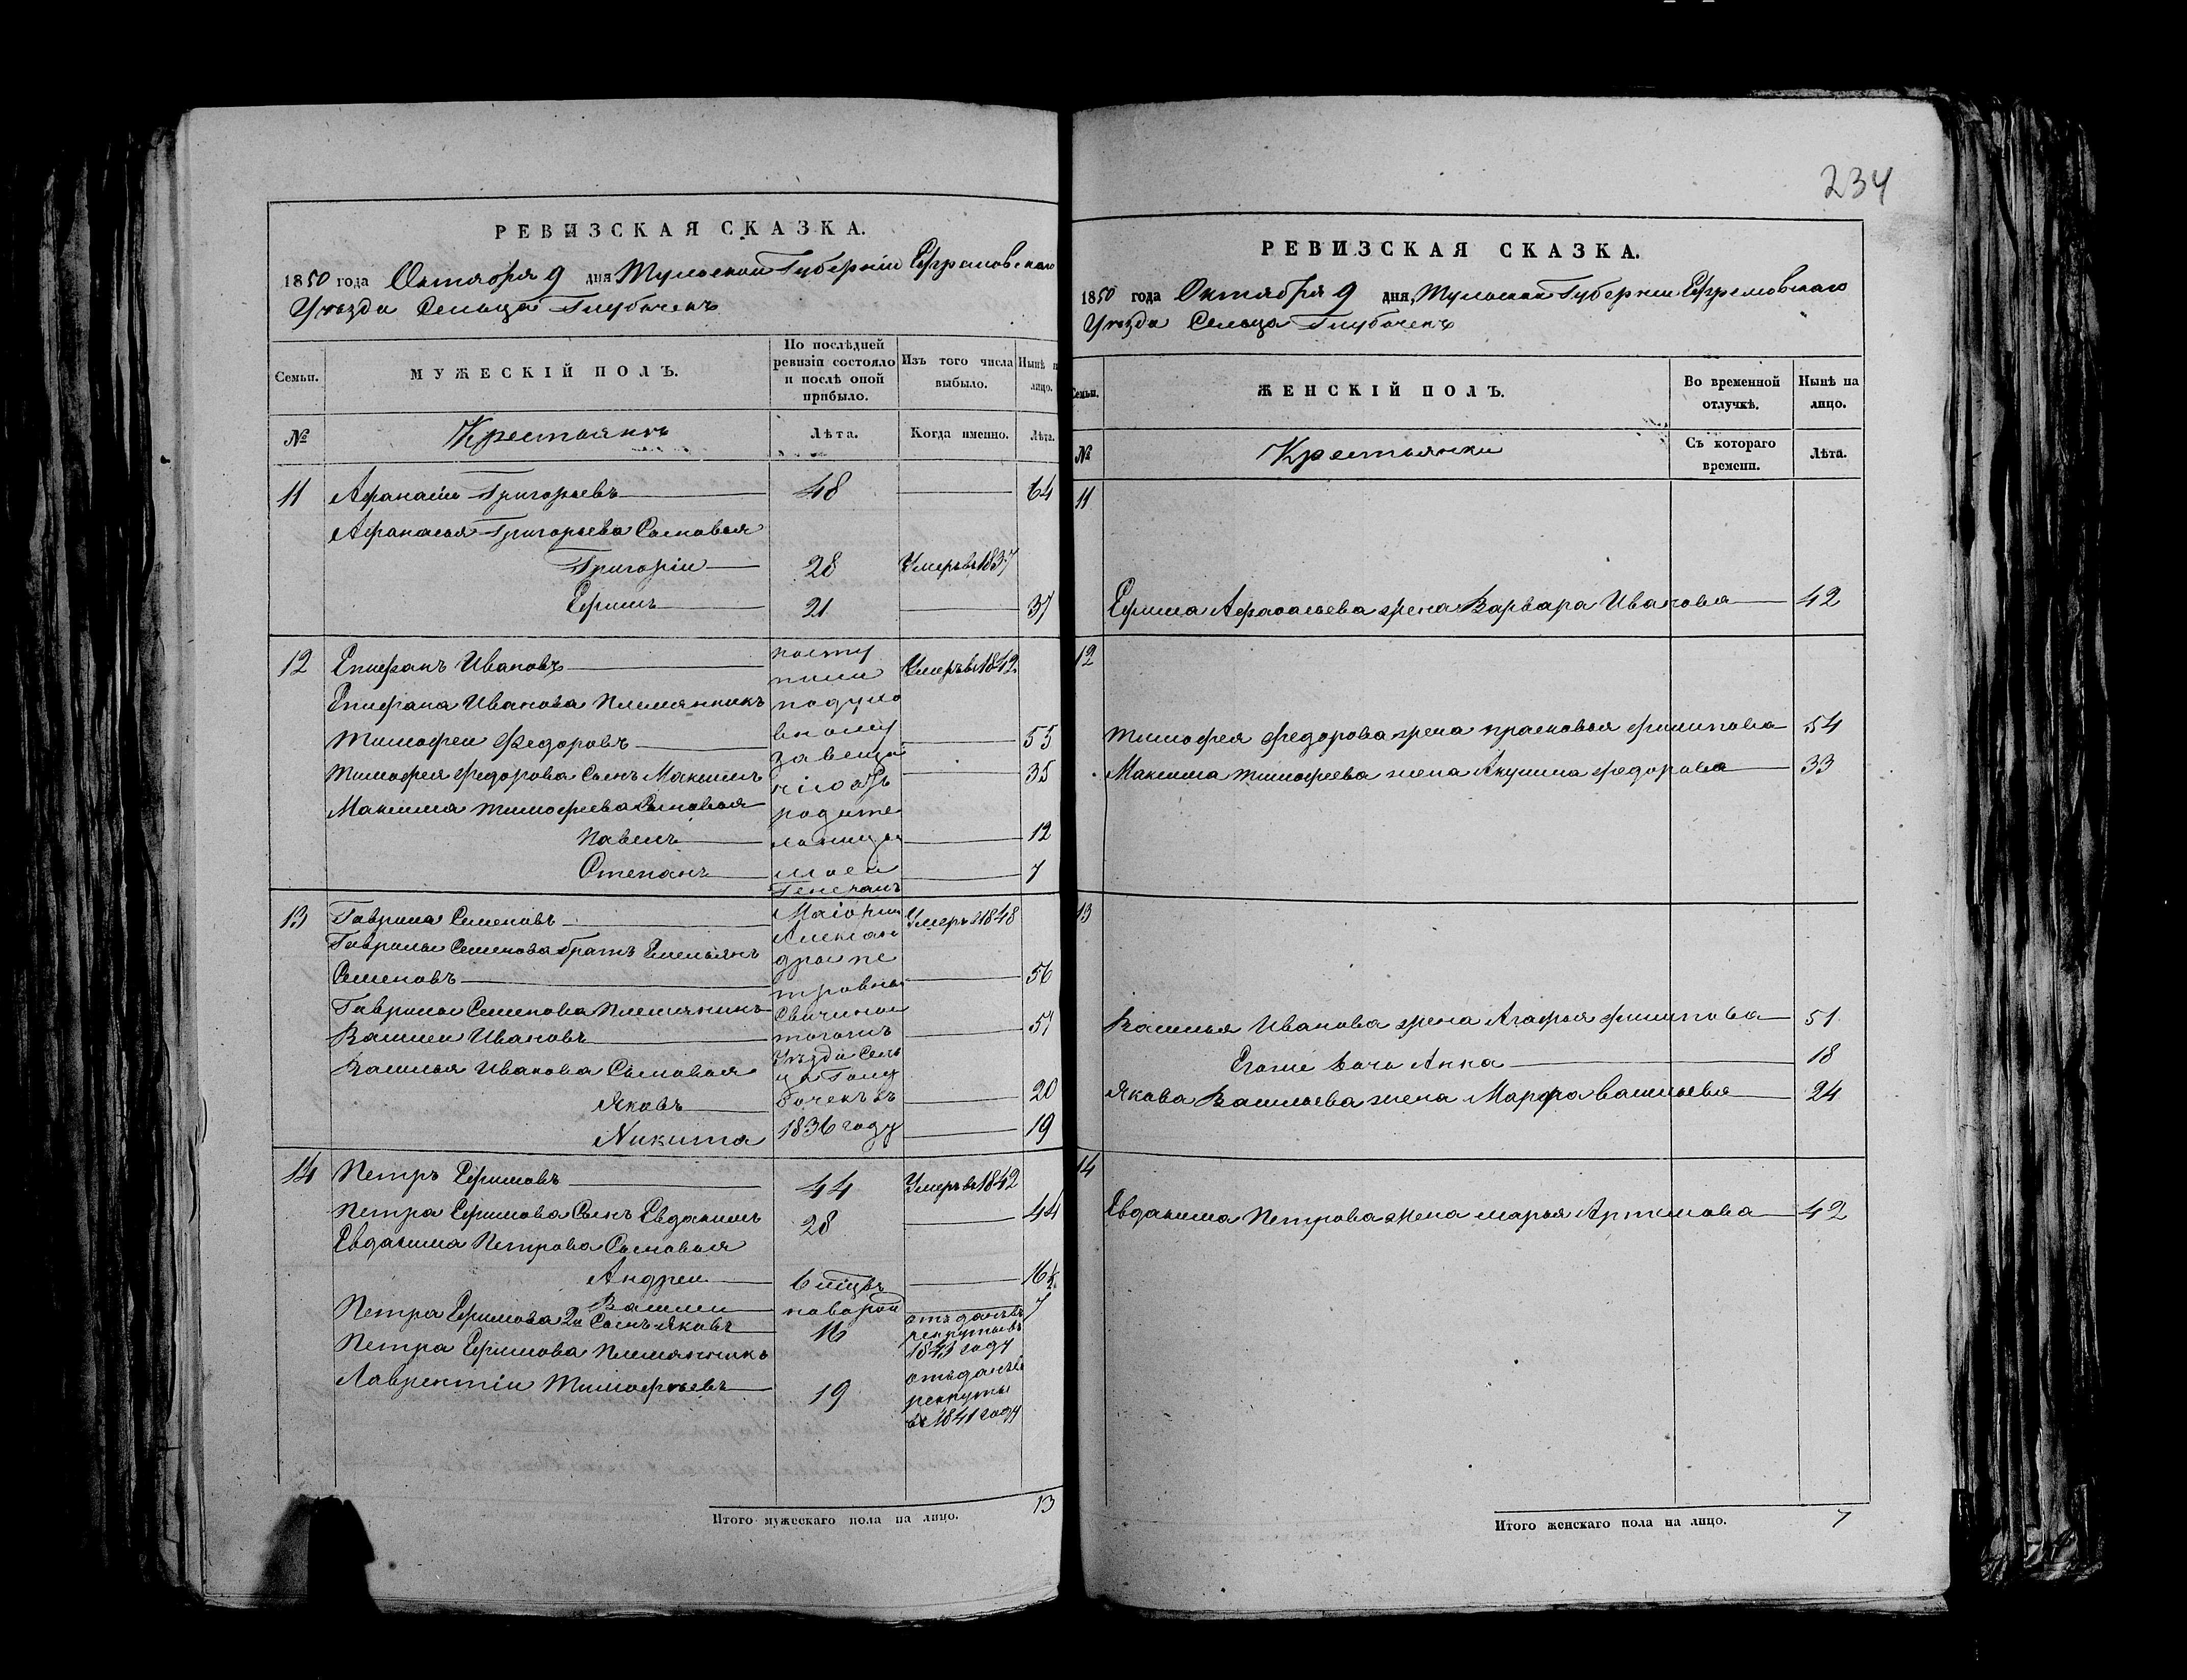 234
РЕВИЗСКАЯ СКАЗКА.
1850 года Октября 9 дня Тульской Губерніи Ефремовскаго
Уѣзда Сельца Глубочекъ
Семьи.
МУЖЕСКІЙ ПОЛЪ.
По послѣдней ревизіи состояло и послѣ оной прибыло.
Изъ того числа выбыло.
Нынѣ на лицо.
№
Крестьянъ
Лѣта.
Когда именно.
Лѣта.
11 Афанасій Григорьевъ 48 64
Афанасья Григорьева Сыновья
Григорій 28 Умеръ въ 1837
Ефимъ 21 37
12 Епифанъ Ивановъ Умеръ въ 1842
Епифана Иванова Племянникъ
Тимофей Федоровъ 55
Тимофея Федорова Сынъ Максимъ 35
Максима Тимофеева Сыновья
Павелъ 12
Степанъ 7
13 Гаврила Семеновъ Умеръ 1848
Гаврилы Семенова братъ Емельянъ
Семеновъ 56
Гаврилы Семенова Племянникъ
Василей Ивановъ 57
Василья Иванова Сыновья
Яковъ 20
Никита 19
посту
пили
по духо
вному
завеща
нію отъ
родите
льницы
моей
Генералъ
Маіорши
Алексан
дры Пе
тровны
Свечиной
тогожъ
Уѣзда Сель
ца Голу
бочекъ въ
1836 году
14 Петръ Ефимовъ 44 Умеръ въ 1842
Петра Ефимова Сынъ Евдакимъ 28 44
Евдакима Петрова Сыновья
Андрей 6 мѣсцъ 16½
Василей новорож 7
Петра Ефимова 2й Сынъ Яковъ 16 отъданъ въ
рекруты въ
1843 году
Петра Ефимова Племянникъ
Лаврентій Тимофеевъ 19 отъданъ въ
рекруты
въ 1841 году
Итого мужескаго пола на лицо. 13
РЕВИЗСКАЯ СКАЗКА.
1850 года Октября 9 дня, Тульской Губерніи Ефремовскаго
Уѣзда Сельца Глубочекъ
Семьи.
ЖЕНСКІЙ ПОЛЪ.
Во временной отлучкѣ.
Нынѣ на лицо.
№
Крестьянки
Съ котораго времени.
Лѣта.
11
Ефима Афанасьева жена Варвара Иванова 42
12
Тимофея Федорова жена Прасковья Филипова 54
Максима Тимофеева жена Акулина Федорова 33
13
Василья Иванова жена Агафья Филипова 51
Егоже дочь Анна 18
Якова Васильева жена Марфа Васильева 24
14
Евдакима Петрова жена Марья Артемова 42
Итого женскаго пола на лицо. 7